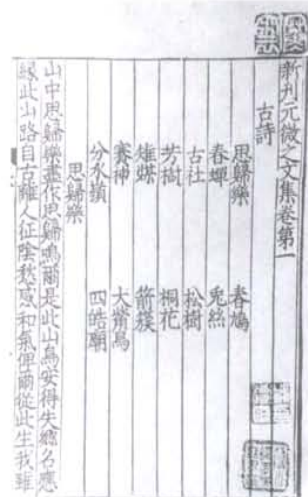 新刊元微之文集卷第一
古詩
思歸樂 春鳩
春蟬 兎絲
古社 松樹
芳樹 桐花
雉媒 箭鏃
賽神 大觜烏
分水嶺 四皓廟
思歸樂
山中思歸樂盡作思歸鳴爾是此山鳥安得失鄉名應
緣此山路自古離人征陰愁感和氣俾爾從此生我雖